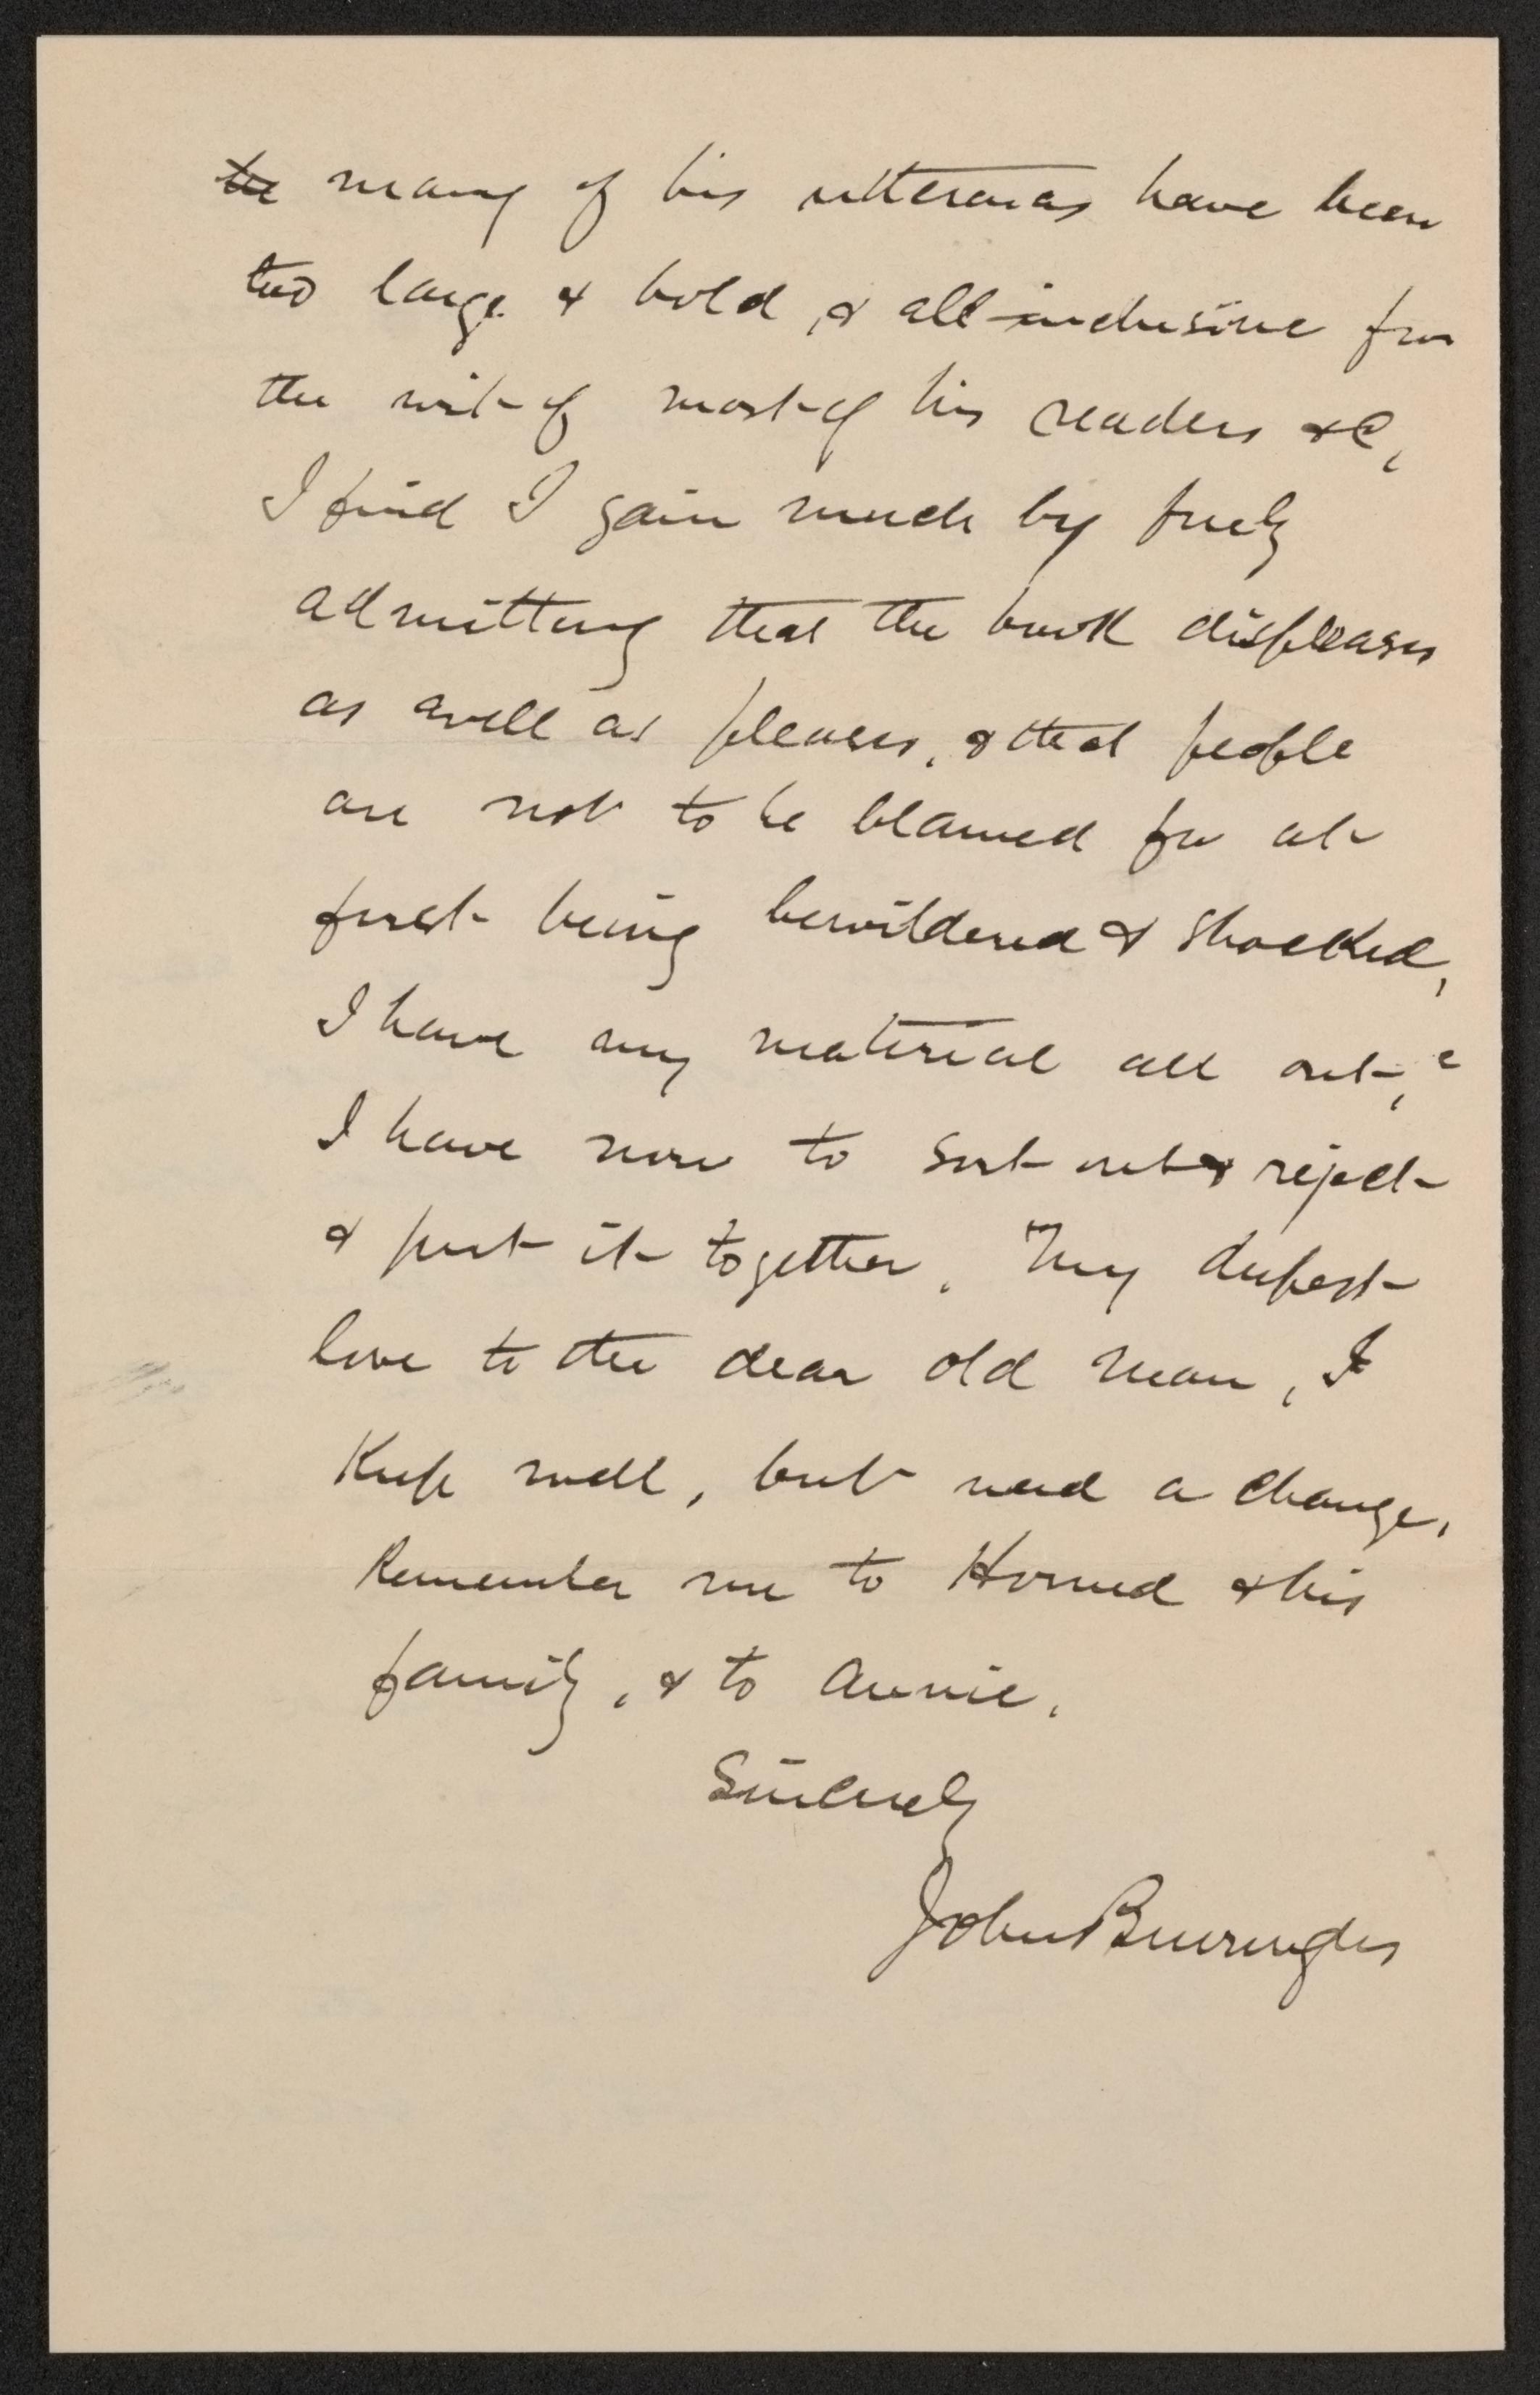 many of his utterances have been
too large & bold, & all-inclusive for
the wit of most of his readers &c,
I find I gain much by freely
admitting that the book displeases
as well as pleases, & that people
are not to be blamed for at
first being bewildered & shocked,
I have my material all out,
I have now to sort out & reject
& put it together. My deepest
love to the dear old man, I
Keep well, but need a change,
Remember me to Horned & his
family, & to Annie.
Sincerely
John Burroughs